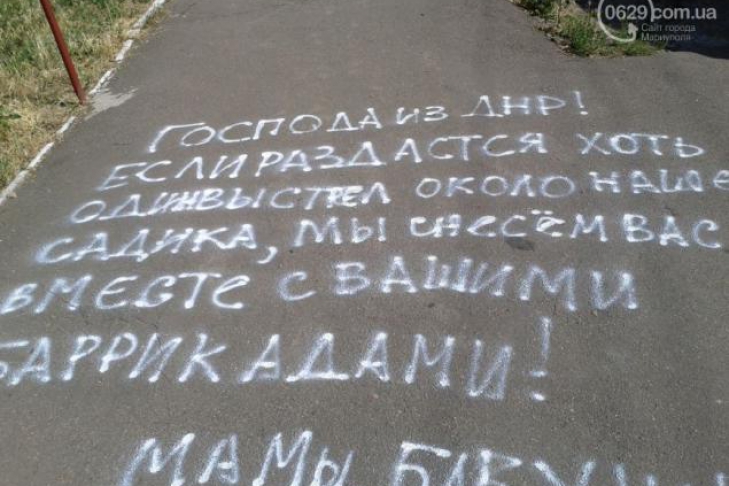 0629.com.ua
Сайт города
Мариуполя
ГОСПОДА ИЗ ДНР!
ЕСЛИ РАЗДАСТСЯ ХОТЬ
ОДИН ВЫСТРЕЛ ОКОЛО НАШЕ
САДИКА, МЫ СНЕСЁМ ВАС
ВМЕСТЕ С ВАШИМИ
БАРРИКАДАМИ!
МАМЫ